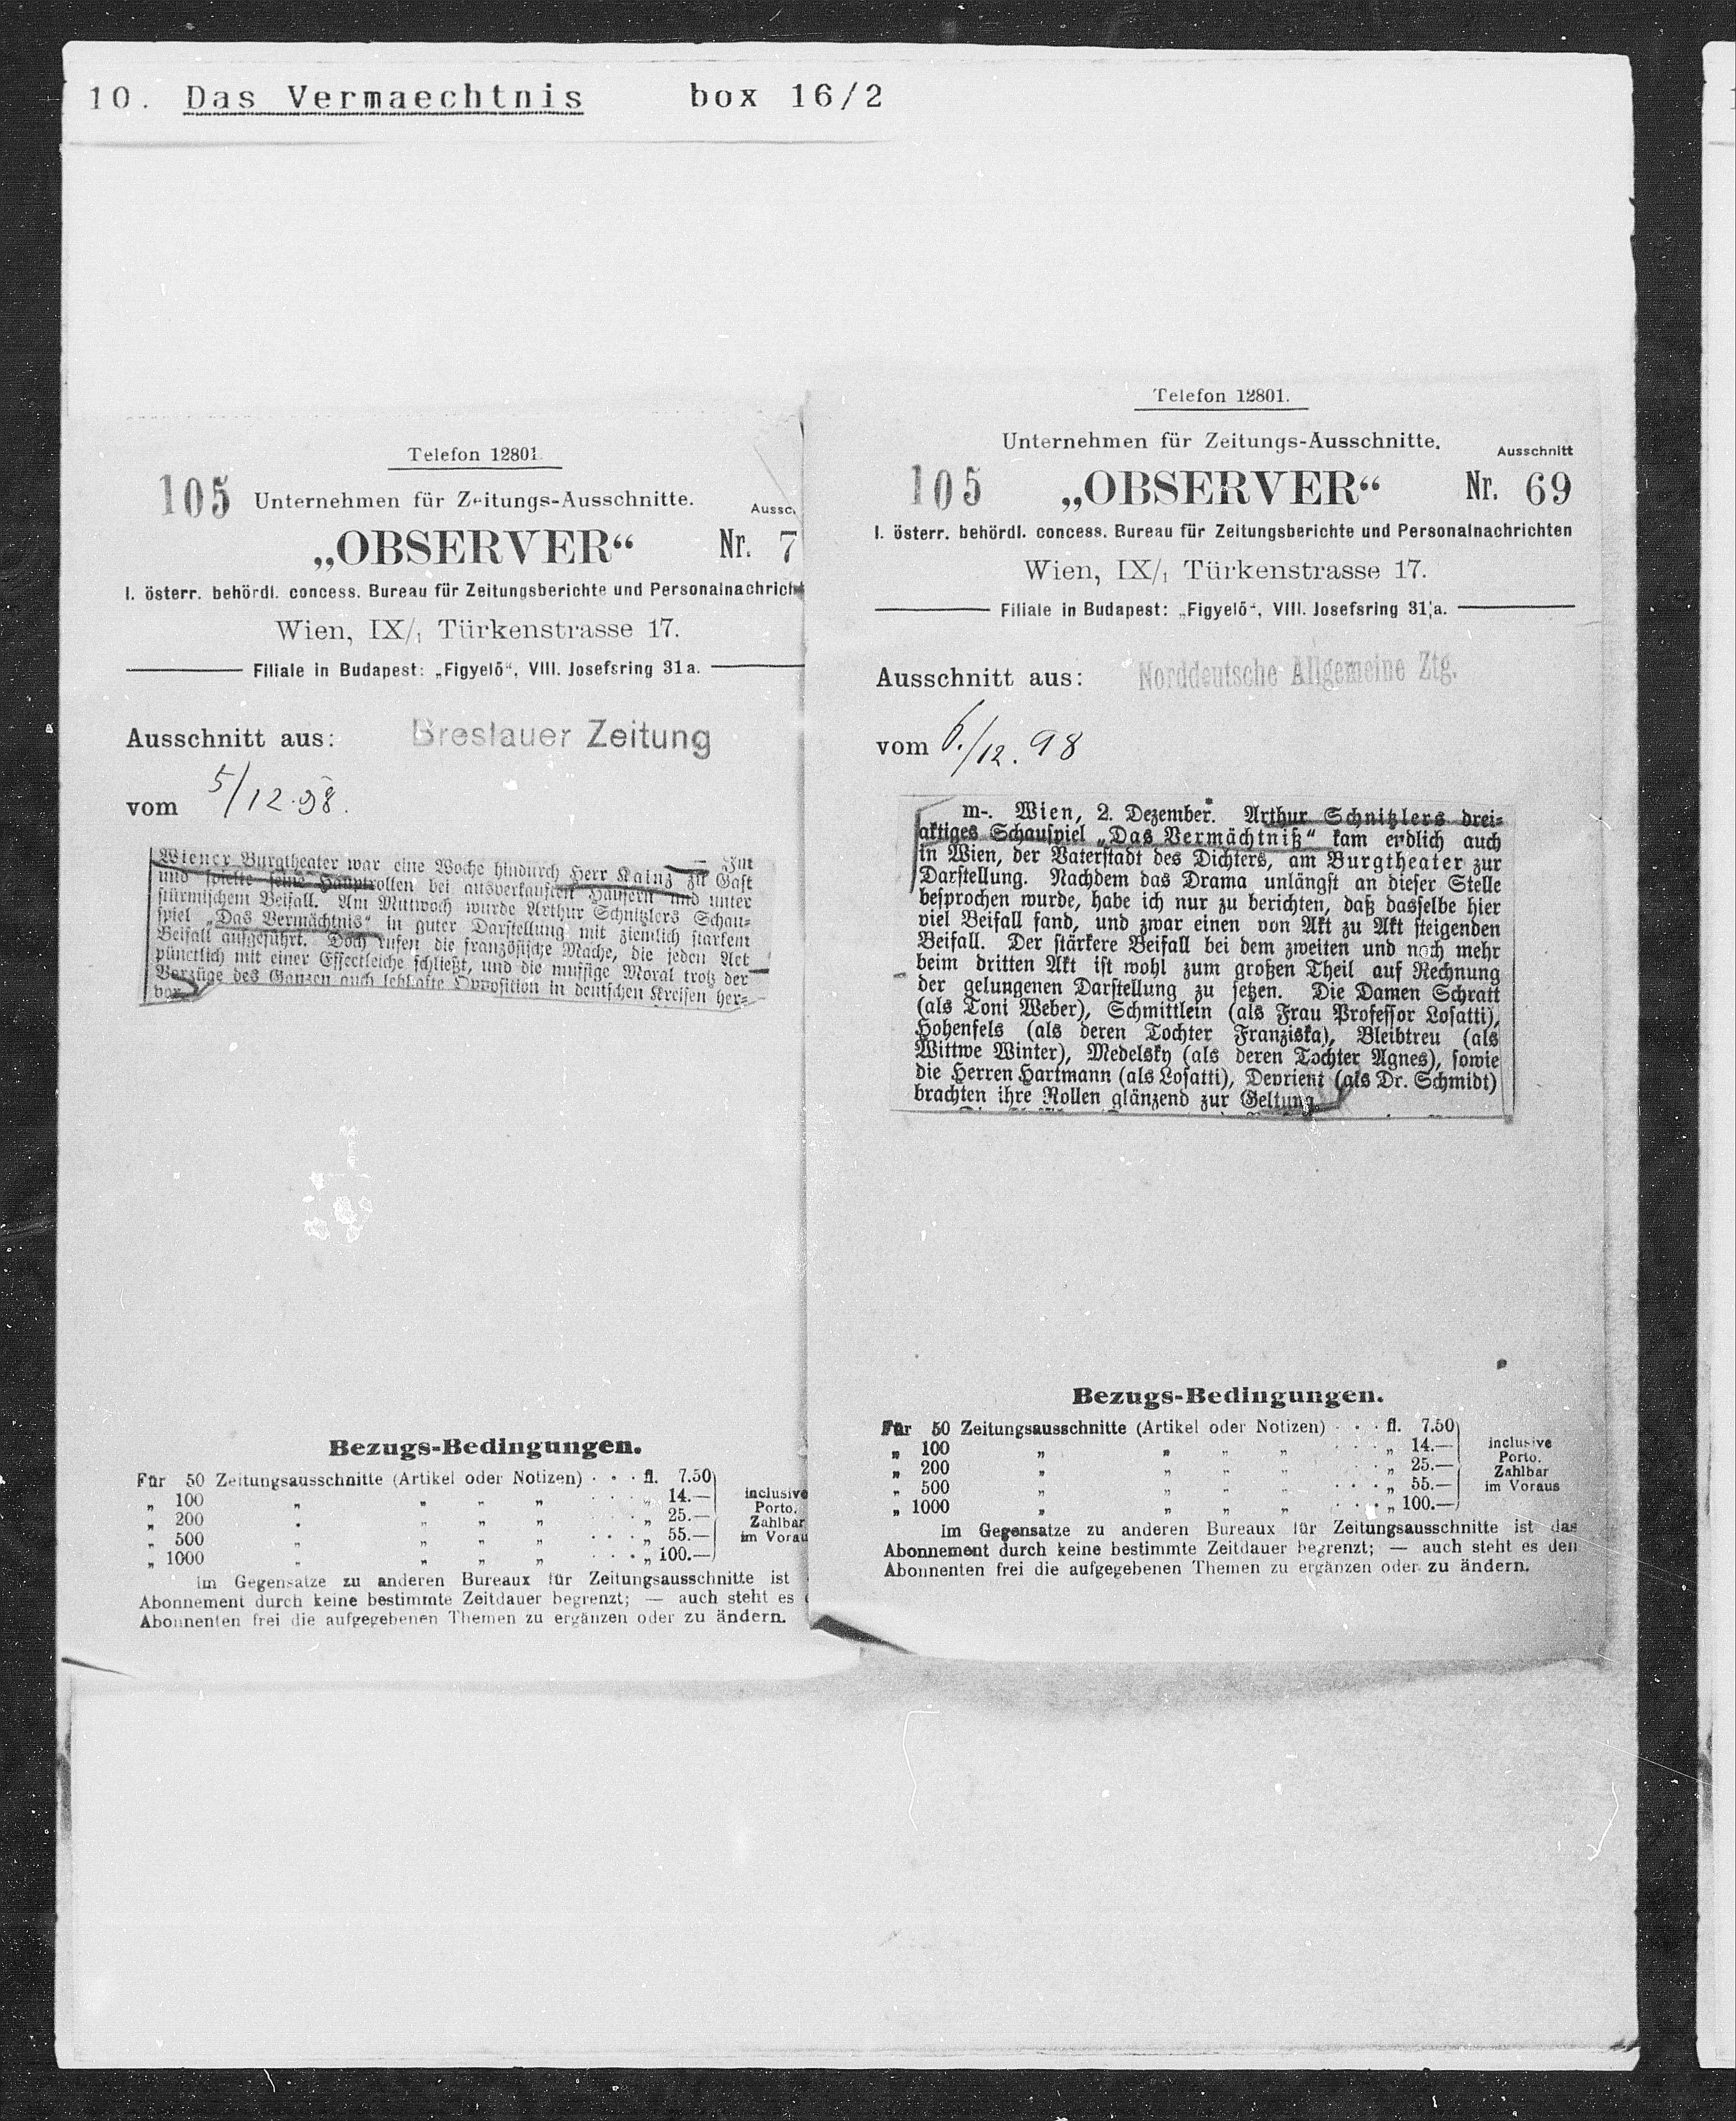 10. Das Vermaechtnis box 16/2
Telefon 12801.
105 Unternehmen für Zeitungs-Ausschnitte.
„OBSERVER“ Nr. 7
I. österr. behördl. concess. Bureau für Zeitungsberichte und Personalnachricht
Wien, IX/1 Türkenstrasse 17.
Filiale in Budapest: „Figyelő“, VIII. Josefsring 31 a.
Ausschnitt aus: Breslauer Zeitung
vom 5/12.98.
Im
Wiener Burgtheater war eine Woche hindurch Herr Kainz zu Gast
und spielte seine Hauptrollen bei ausverkauften Häusern und unter
stürmischem Beifall. Am Mittwoch wurde Arthur Schnitzlers Schau-
spiel „Das Vermächtnis“ in guter Darstellung mit ziemlich starkem
Beifall aufgeführt. Doch rufen die französische Mache, die jeden Act
pünctlich mit einer Effectleiche schließt, und die muffige Moral trotz der
Vorzüge des Ganzen auch lebhafte Opposition in deutschen Kreisen her-
vor.
Bezugs-Bedingungen.
Für 50 Zeitungsausschnitte (Artikel oder Notizen) . . . fl. 7.50
„ 100 „ „ „ „ . . . „ 14.— inclusive
„ 200 „ „ „ „ . . . „ 25.— Porto.
„ 500 „ „ „ „ . . . „ 55.— Zahlbar
„ 1000 „ „ „ „ . . . „ 100.— im Vorau
Im Gegensatze zu anderen Bureaux für Zeitungsausschnitte ist
Abonnement durch keine bestimmte Zeitdauer begrenzt; — auch steht es
Abonnenten frei die aufgegebenen Themen zu ergänzen oder zu ändern.
Telefon 12801.
Unternehmen für Zeitungs-Ausschnitte.
Ausschnitt
105 „OBSERVER“ Nr. 69
I. österr. behördl. concess. Bureau für Zeitungsberichte und Personalnachrichten
Wien, IX/1 Türkenstrasse 17.
Filiale in Budapest: „Figyelő“, VIII. Josefsring 31/a.
Ausschnitt aus: Norddeutsche Allgemeine Ztg.
vom 6./12. 98
m-. Wien, 2. Dezember. Arthur Schnitzlers drei-
aktiges Schauspiel „Das Vermächtniß“ kam endlich auch
in Wien, der Vaterstadt des Dichters, am Burgtheater zur
Darstellung. Nachdem das Drama unlängst an dieser Stelle
besprochen wurde, habe ich nur zu berichten, daß dasselbe hier
viel Beifall fand, und zwar einen von Akt zu Akt steigenden
Beifall. Der stärkere Beifall bei dem zweiten und noch mehr
beim dritten Akt ist wohl zum großen Theil auf Rechnung
der gelungenen Darstellung zu setzen. Die Damen Schratt
(als Toni Weber), Schmittlein (als Frau Professor Losatti),
Hohenfels (als deren Tochter Franziska), Bleibtreu (als
Wittwe Winter), Medelsky (als deren Tochter Agnes), sowie
die Herren Hartmann (als Losatti), Devrient (als Dr. Schmidt)
brachten ihre Rollen glänzend zur Geltung.
Bezugs-Bedingungen.
Für 50 Zeitungsausschnitte (Artikel oder Notizen) . . . fl. 7.50
„ 100 „ „ „ „ . . . „ 14.— inclusive
„ 200 „ „ „ „ . . . „ 25.— Porto.
„ 500 „ „ „ „ . . . „ 55.— Zahlbar
„ 1000 „ „ „ „ . . . „ 100.— im Voraus
Im Gegensatze zu anderen Bureaux für Zeitungsausschnitte ist das
Abonnement durch keine bestimmte Zeitdauer begrenzt; — auch steht es den
Abonnenten frei die aufgegebenen Themen zu ergänzen oder zu ändern.